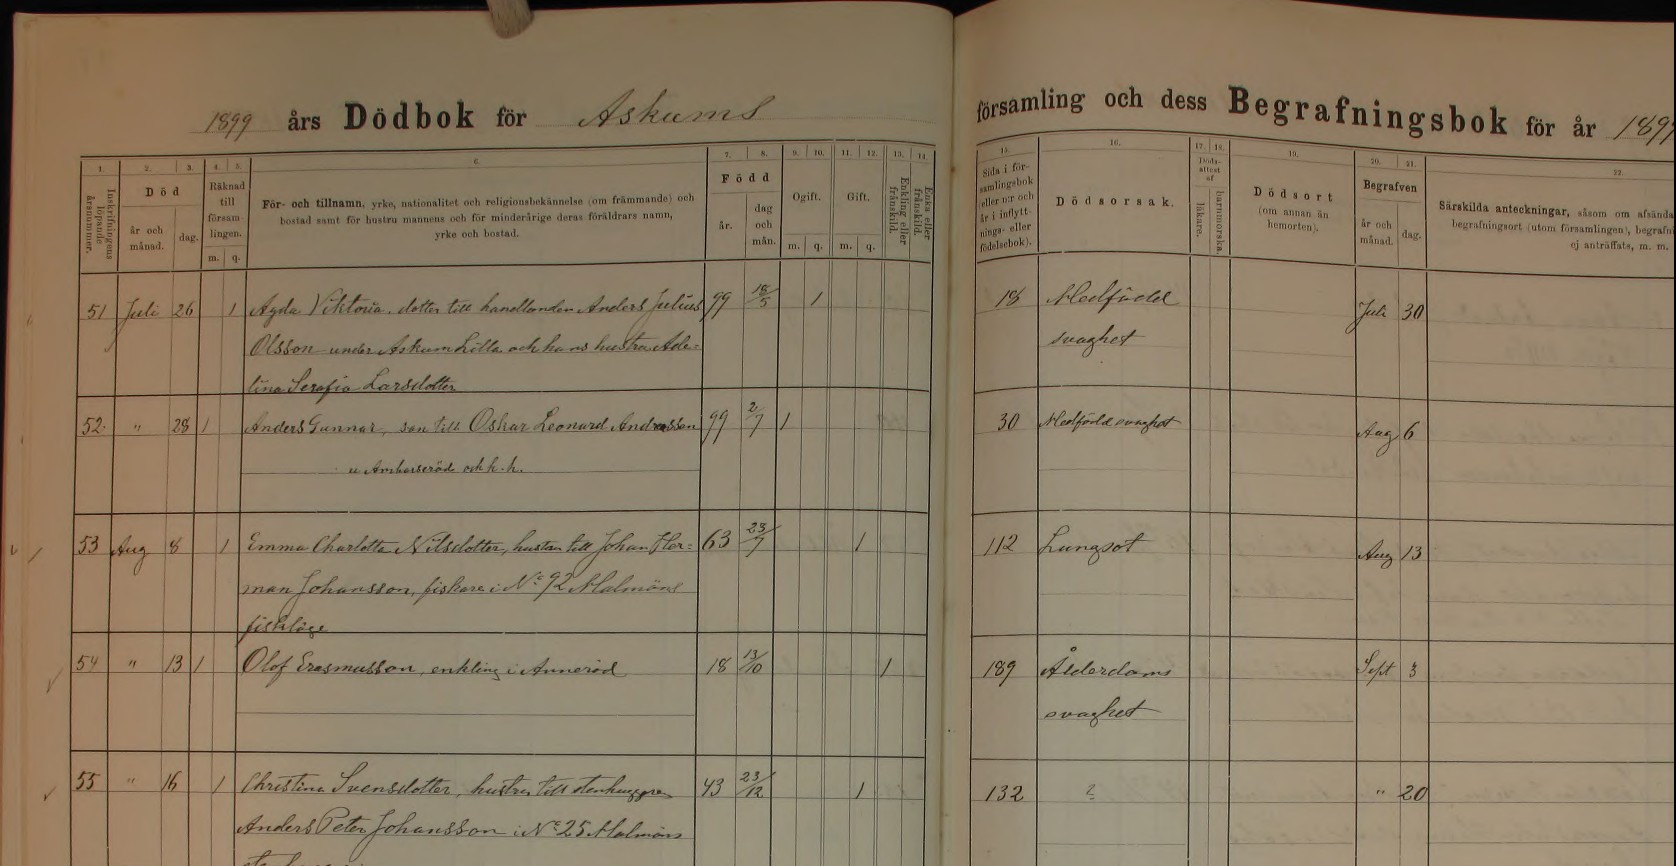 1899 års Dödbok för Askums
församling och dess Begrafningsbok för år 189
1. 2. 3. 4. 5. 6. 7. 8. 9. 10. 11. 12. 13. 14.
Inskrifningens löpande årsnummer.
Död
år och månad.
dag.
Räknad till församlingen.
m. q.
För- och tillnamn, yrke, nationalitet och religionsbekännelse (om främmande) och
bostad samt för hustru mannens och för minderårige deras föräldrars namn,
yrke och bostad.
Född
år.
dag och mån.
Ogift.
m. q.
Gift.
m. q.
Enkling eller frånskild.
Enka eller frånskild.
15. 16. 17. 18. 19. 20. 21. 22.
Sida i för-
samlingsbok
eller n:r och
år i inflytt-
nings- eller
födelsebok).
Dödsorsak.
Döds-
attest
af
läkare.
barnmorska.
Dödsort
(om annan än
hemorten).
Begrafven
år och månad.
dag.
Särskilda anteckningar, såsom om afsända
begrafningsort (utom församlingen), begrafn
ej anträffats, m. m.
51 Juli 26 1 Agda Viktoria, dotter till handlanden Anders Julius 99 18/5 1 18 Medfödd Juli 30
Olsson under Askum Lilla och hans hustru Ade= svaghet
lina Serafia Larsdotter
52 " 28 1 Anders Gunnar, son till Oskar Leonard Andreasson 99 2/7 1 30 Medfödd svaghet Aug 6
u och h. h.
53 Aug 8 1 Emma Charlotta Nilsdotter, hustru till Johan Her= 63 23/7 1 112 Lungsot Aug 13
man Johansson, fiskare i No 92 Malmöns
fiskläge
54 " 13 1 Olof Erasmusson, enkling i Anneröd 18 13/10 1 189 Ålderdoms Sept 3
svaghet
55 " 16 1 Christina Svensdotter, hustru till stenhuggaren 43 23/12 1 132 ? " 20
Anders Peter Johansson i No 25 Malmöns